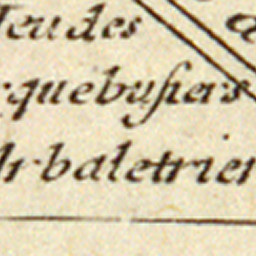 Jeu des
rquebusiers
Arbaletrier